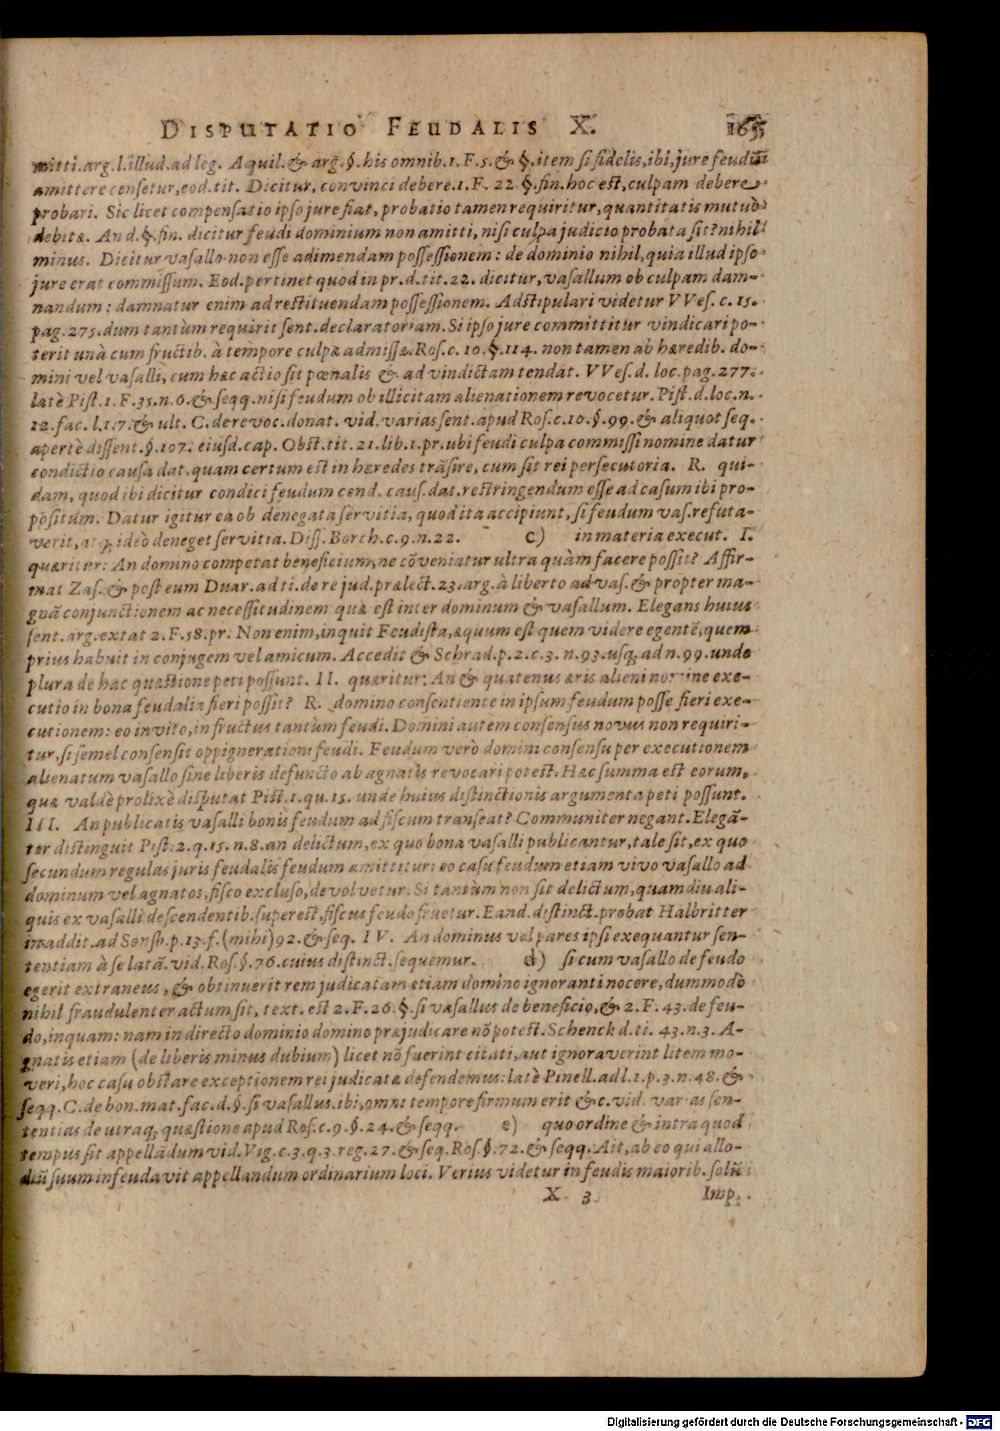 DISPUTATIO FEUDALIS X. 165
mitti.arg.l.illud.ad leg. Aquil.& arg.§.his omnib.1.F.5.& §.item si fidelis,ibi,jure feudũ
amittere censetur,eod.tit. Dicitur, convinci debere.1.F. 22 §.fin.hoc est,culpam debere
probari. Sic licet compensatio ipso jure fiat, probatio tamen requiritur, quantitatis mutuò
debitæ. An d.§.fin. dicitur feudi dominium non amitti, nisi culpa judicio probata sit? nihil
minus. Dicitur vasallo non esse adimendam possessionem: de dominio nihil, quia illud ipso
jure erat commissum. Eod.pertinet quod in pr.d.tit.22. dicitur, vasallum ob culpam dam-
nandum: damnatur enim ad restituendam possessionem. Adstipulari videtur VVes. c. 15.
pag.275.dum tantùm requirit sent.declaratoriam. Si ipso jure committitur vindicari po-
terit unà cum fructib. à tempore culpæ admissæ. Ros. c. 10. §.114. non tamen ab hæredib. do-
mini vel vasalli, cum hæc actio sit pœnalis & ad vindictam tendat. VVes.d. loc.pag.277.
latè Pist.1.F.35.n.6.& seqq.nisi feudum ob illicitam alienationem revocetur. Pist.d.loc.n.
12.fac. l.1.7.& ult. C.de revoc.donat. vid. varias sent.apud Ros.c.10.§.99.& aliquot seq.
apertè dissent.§.107. eiusd.cap. Obst.tit. 21.lib.1.pr.ubi feudi culpa commissi nomine datur
condictio causa dat.quam certum est in hæredes trãsire, cum sit rei persecutoria. R. qui-
dam, quod ibi dicitur condici feudum cond. caus.dat.restringendum esse ad casum ibi pro-
positum. Datur igitur ea ob denegata servitia, quod ita accipiunt, si feudum vas.refuta-
verit, atq; ideò deneget servitia. Diss. Borch.c.9.n.22. c) in materia execut. I.
quæritur: An domino competat beneficium, ne cõveniatur ultra quàm facere possit? Affir-
mat Zas. & post eum Duar. ad ti. de re jud. prælect.23.arg.à liberto ad vas.& propter ma-
gnã conjunctionem ac necessitudinem quæ est inter dominum & vasallum. Elegans huius
sent.arg.extat 2.F.58.pr. Non enim, inquit Feudista, æquum est quem videre egentẽ, quem
prius habuit in conjugem vel amicum. Accedit & Schrad.p.2.c.3.n.93.usq; ad n.99.unde
plura de hac quæstione peti possunt. II. quæritur: An & quatenus æris alieni nomine exe-
cutio in bona feudalia fieri possit? R. domino consentiente in ipsum feudum posse fieri exe-
cutionem: eo invito, in fructus tantùm feudi. Domini autem consensus novus non requiri-
tur, si semel consensit oppignerationi feudi. Feudum verò domini consensu per executionem
alienatum vasallo sine liberis defuncto ab agnatis revocari potest. Hæc summa est eorum,
quæ valdè prolixè disputat Pist.1.qu.15. unde huius distinctionis argumenta peti possunt.
III. An publicatis vasalli bonis feudum ad fiscum transeat? Communiter negant. Elegã-
ter distinguit Pist.2.q.15.n.8.an delictum, ex quo bona vasalli publicantur, tale sit, ex quo
secundum regulas juris feudalis feudum amittitur: eo casu feudum etiam vivo vasallo ad
dominum vel agnatos, fisco excluso, devolvetur. Si tantùm non sit delictum, quamdiu ali-
quis ex vasalli descendentib.superest, fiscus feudo fruetur. Eand.distinct.probat Halbritter
in addit.ad Sonsb.p.13.f.(mihi)92.& seq. IV. An dominus vel pares ipsi exequantur sen-
tentiam à se latã. vid.Ros.§.76.cuius distinct.sequemur. d) si cum vasallo de feudo
egerit extraneus, & obtinuerit rem judicatam etiam domino ignoranti nocere, dummodò
nihil fraudulenter actum sit, text. est 2.F.26.§.si vasallus de beneficio, & 2.F. 43. de feu-
do, inquam: nam in directo dominio domino præjudicare nõ potest. Schenck d.ti. 43.n.3. A-
gnatis etiam (de liberis minus dubium) licet nõ fuerint citati, aut ignoraverint litem mo-
veri, hoc casu obstare exceptionem rei judicatæ defendemus: latè Pinell.ad l.1.p.3.n.48.&
seqq.C.de bon.mat.fac.d.§.si vasallus.ibi, omni tempore firmum erit & c. vid. varias sen-
tentias de utraq; quæstione apud Ros.c.9.§.24.& seqq. e) quo ordine & intra quod
tempus sit appellãdum vid. Vig.c.3.q.3.reg.27.& seq. Ros.§.72.& seqq. Ait, ab eo qui allo-
diũ suum infeudavit appellandum ordinarium loci. Verius videtur in feudis maiorib. solũ
X 3 Imp.
Digitalisierung gefördert durch die Deutsche Forschungsgemeinschaft - DFG